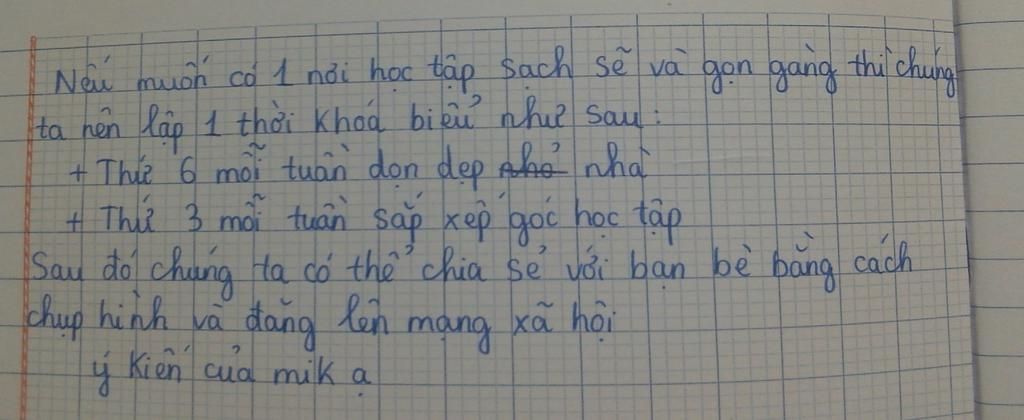 Nếu muốn có 1 nơi học tập sạch sẽ và gọn gàng thì chúng
ta nên lập 1 thời khoá biểu như sau:
+ Thứ 6 mỗi tuần dọn dẹp nhà
+ Thứ 3 mỗi tuần sắp xếp góc học tập
Sau đó chúng ta có thể chia sẻ với bạn bè bằng cách
chụp hình và đăng lên mạng xã hội
ý kiến của mik ạ